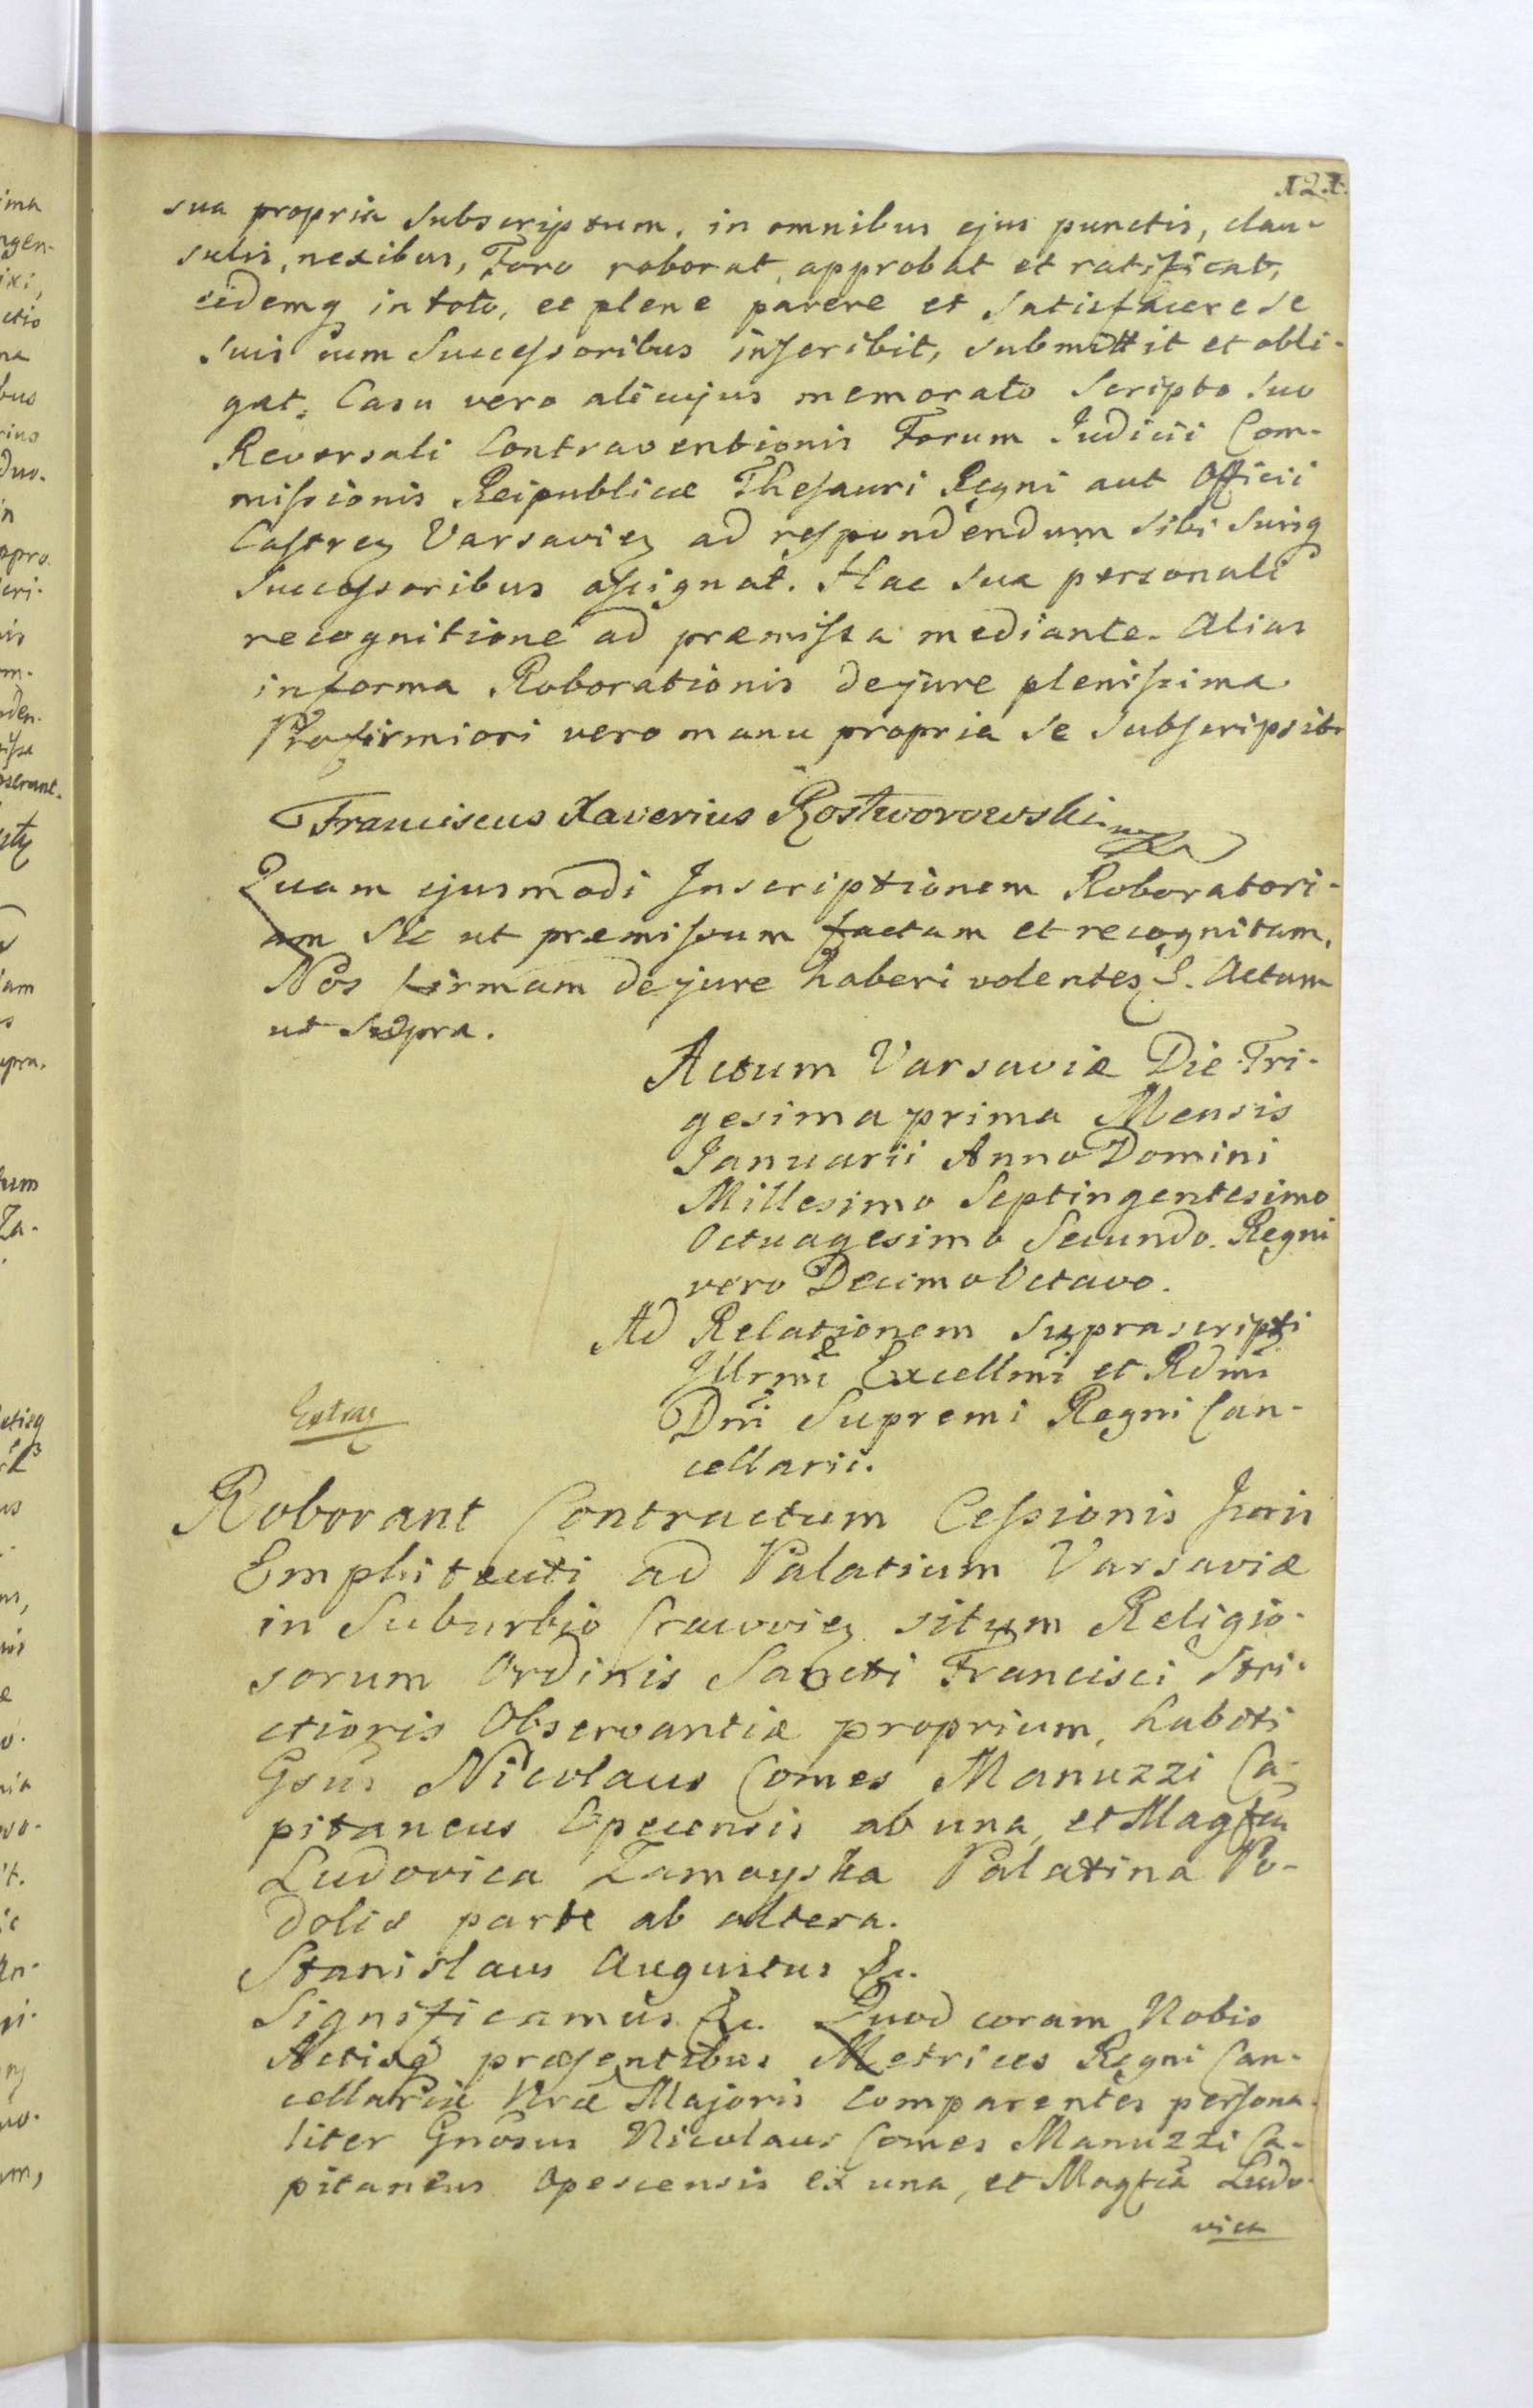 121.
sua propria Subscriptum, in omnibus ejus punctis, clau-
sulis, nexibus, Foro roborat, approbat et ratificat,
eidemq in toto, et plene parere et Satisfacere Se
Suis cum Succeſsoribus inſcribit, submittit et obli-
gat. Casu vero alicujus memorato Scripto Suo
Reversali Contraventionis Forum Judicii Com-
miſsionis Reipublicæ Theſauri Regni aut Officii
Caſtreɳ Varsavieɳ ad reſpondendum Sibi Suisq
Succeſsoribus aſsignat. Hac Sua personali
recognitione ad præmiſsa mediante. Alias
in forma Roborationis de jure pleniſsima
Pro firmiori vero manu propria Se Subſcripsit.
Franciscus Xaverius Rostworowski mpa
Quam ejusmodi Inscriptionem Roboratori-
am Sic ut præmiſsum factam et recognitam,
Nos firmam de jure haberi volentes &. Actum
ut Supra.
Actum Varsaviæ Die Tri-
gesima prima Mensis
Januarii Anno Domini
Millesimo Septingentesimo
Octuagesimo Secundo. Regni
vero Decimo Octavo.
Ad Relationem Suprascripti
Illrmi Excellmi et Rdmi
Dni Supremi Regni Can-
cellarii.
Roborant Contractum Ceſsionis Juris
Emphiteuti ad Palatium Varsaviæ
in Suburbio Cracovieɳ situm Religio-
sorum Ordinis Sancti Francisci Stri-
ctioris Observantiæ proprium, habiti
Gsus Nicolaus Comes Manuzzi Ca-
pitaneus Opecensis ab una, et Magfca
Ludovica Zamoyska Palatina Po-
doliæ parte ab altera.
Stanislaus Augustus &c.
Significamus &c. Quod coram Nobis
Actisq præſentibus Metrices Regni Can-
cellariæ Nræ Majoris Comparentes perſona-
liter Gnosus Nicolaus Comes Manuzzi Ca-
pitaneus Opescensis ex una, et Magfca Ludo-
vica